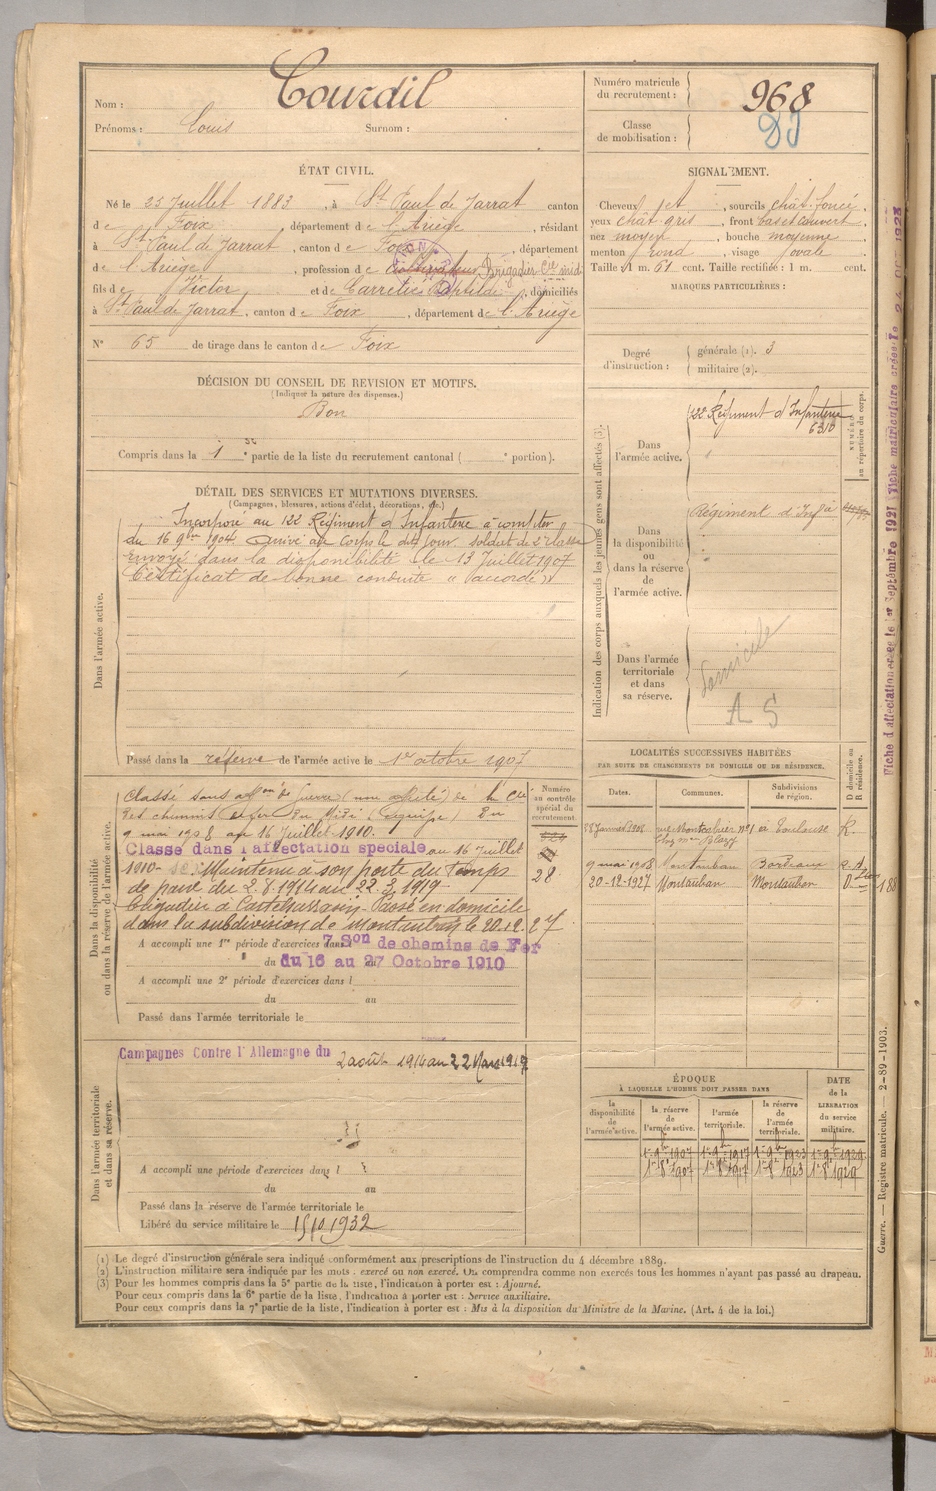 Nom : Courdil
Prénoms : Louis Surnom :
Numéro matricule du recrutement : 968
Classe de mobilisation :
ÉTAT CIVIL.
Né le 25 Juillet 1883, à St Paul de Jarrat canton
de Foix, département de l'Ariège, résidant
à St Paul de Jarrat, canton de Foix, département
de l'Ariège, profession de cultivateur Brigadier Cie midi
fils de Victor et de Carretié Baptilde, domiciliés
à St Paul de Jarrat, canton de Foix, département de l'Ariège
N° 65 de tirage dans le canton de Foix
DÉCISION DU CONSEIL DE REVISION ET MOTIFS.
(Indiquer la nature des dispenses.)
Bon
Compris dans la 1 e partie de la liste du recrutement cantonal ( e portion).
SIGNALEMENT.
Cheveux et, sourcils chât. foncé
yeux chât gris, front bas et couvert
nez moyen, bouche moyenne
menton rond, visage ovale
Taille : 1 m. 61 cent. Taille rectifiée : 1 m. cent.
MARQUES PARTICULIÈRES :
Degré d'instruction : générale (1). 3
militaire (2).
DÉTAIL DES SERVICES ET MUTATIONS DIVERSES.
(Campagnes, blessures, actions d'éclat, décorations, etc.)
Dans l'armée active.
Incorporé au 122 Régiment d'Infanterie à compter
du 16 9bre 1904. Arrivé au Corps le dit jour. soldat de 2e classe
Envoyé dans la disponibilité le 13 Juillet 1907
Certificat de bonne conduite "accordé"
Passé dans la réserve de l'armée active le 1er octobre 1907
Indication des corps auxquels les jeunes gens sont affectés (3).
Dans l'armée active.
122 Régiment d'Infanterie
6310
NUMÉRO au répertoire du corps.
Dans la disponibilité ou dans la réserve de l'armée active.
Régiment d'Infie à
Dans l'armée territoriale et dans sa réserve.
Domicile
A S
Fiche d'affectation créée le 1er Septembre 1921 Fiche matriculaire créée le 24 OC 1928
Dans la disponibilité ou dans la réserve de l'armée active.
Numéro au contrôle spécial du recrutement.
Classé sans affon de Guerre (non affecté) de la Cie
des chemins de fer du Midi (équipe) Du
9 mai 1908 au 16 Juillet 1910.
Classé dans l'affectation spéciale au 16 Juillet
1910. Maintenu à son poste du temps
de paix du 2.8.1914 au 22.3.1919
28
Brigadier à Castelsarrasin. Passé en domicile
dans la subdivision de Montauban le 20.12.27
A accompli une 1re période d'exercices dans 7 Son de chemins de Fer
du 16 au 27 Octobre 1910
A accompli une 2e période d'exercices dans l
du au
Passé dans l'armée territoriale le
LOCALITÉS SUCCESSIVES HABITÉES
PAR SUITE DE CHANGEMENTS DE DOMICILE OU DE RÉSIDENCE.
Dates. Communes. Subdivisions de région. D domicile ou R résidence.
Janvier 1908 rue Montcabrier n°1 à Toulouse R.
9 mai 1908 Montauban Bordeaux
20-12-1927 Montauban Montauban D
Dans l'armée territoriale et dans sa réserve.
Campagnes Contre l'Allemagne du 2 août 1914 au 22 Mars 1919
A accompli une période d'exercices dans l
du au
Passé dans la réserve de l'armée territoriale le
Libéré du service militaire le 15/10 1932
ÉPOQUE
À LAQUELLE L'HOMME DOIT PASSER DANS
la disponibilité de l'armée active. la réserve de l'armée active. l'armée territoriale. la réserve de l'armée territoriale.
DATE de la LIBÉRATION du service militaire.
1er 9bre 1907 1er 9bre 1917 1er 9bre 1923 1er 9bre 1929
1er 8bre 1907 1er 8bre 1917 1er 8bre 1923 1er 8bre 1929
Guerre. — Registre matricule. — 2-89-1903.
(1) Le degré d'instruction générale sera indiqué conformément aux prescriptions de l'instruction du 4 décembre 1889.
(2) L'instruction militaire sera indiquée par les mots : exercé ou non exercé. On comprendra comme non exercés tous les hommes n'ayant pas passé au drapeau.
(3) Pour les hommes compris dans la 5e partie de la liste, l'indication à porter est : Ajourné.
Pour ceux compris dans la 6e partie de la liste, l'indication à porter est : Service auxiliaire.
Pour ceux compris dans la 7e partie de la liste, l'indication à porter est : Mis à la disposition du Ministre de la Marine. (Art. 4 de la loi.)